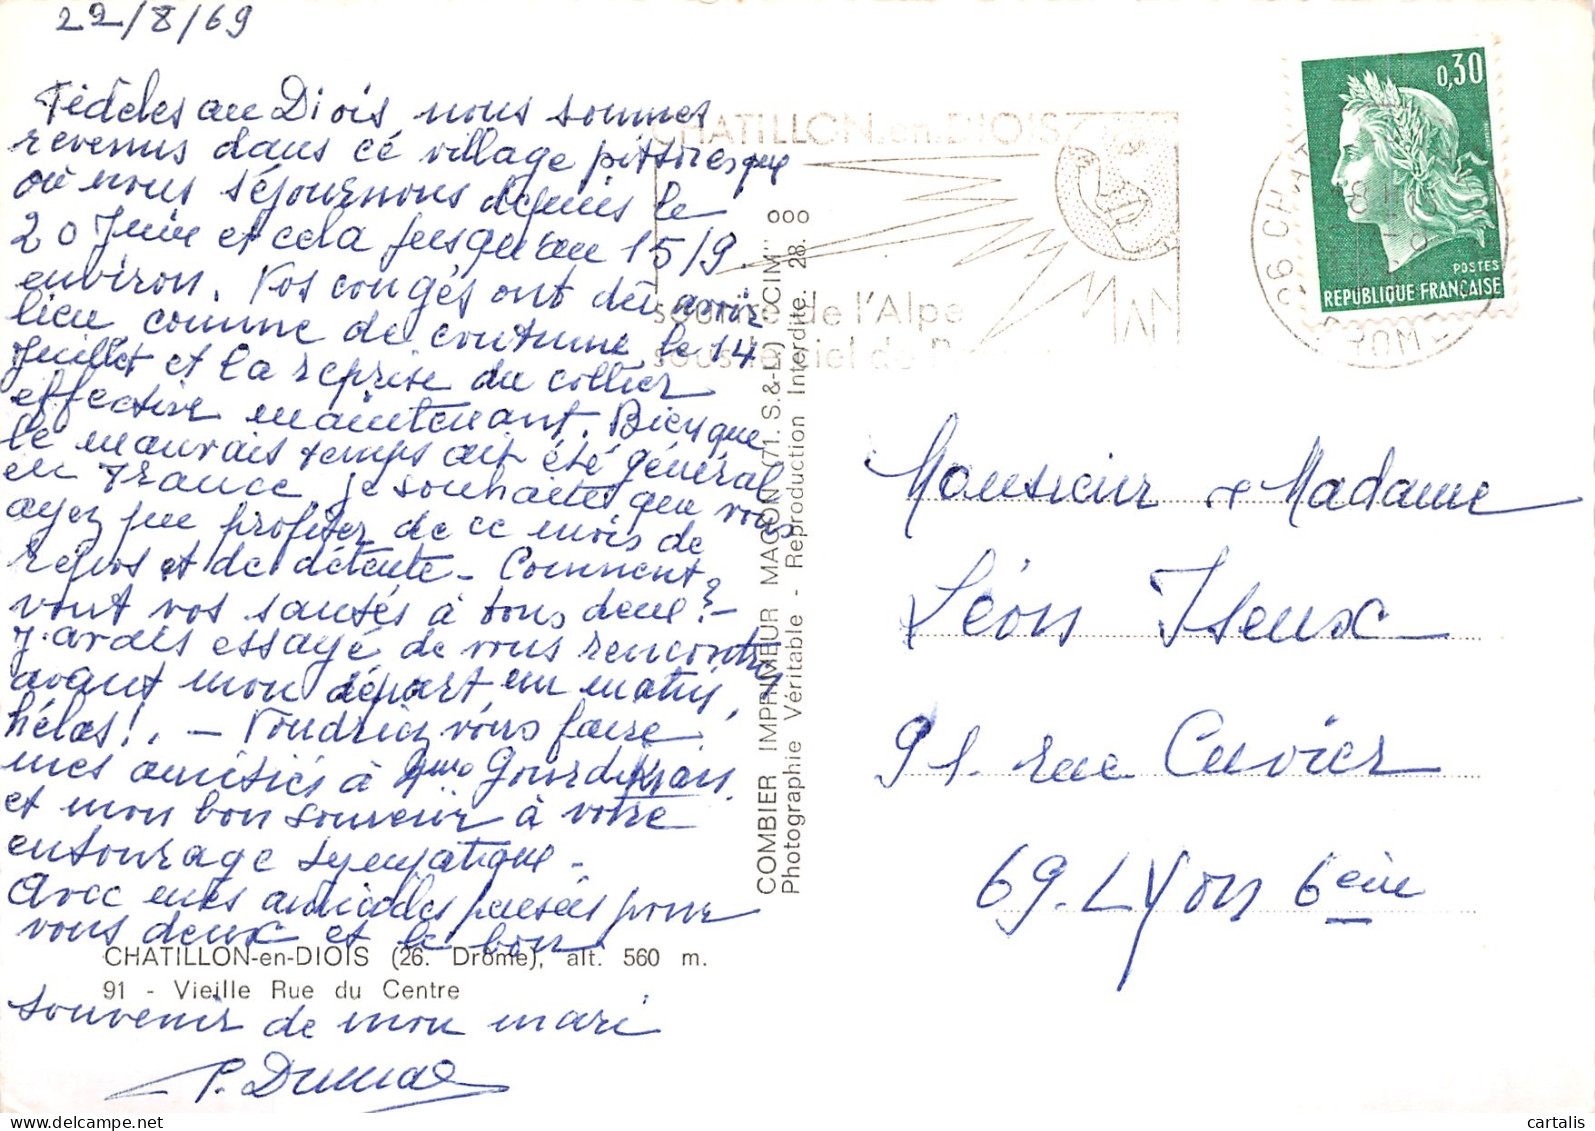 22/8/69
Fidèles au Diois nous sommes
revenus dans cé village pittoresque
où nous séjournons depuis le
20 Juin et cela jusqu'au 15/9
environ. Vos congés ont dû avoir
lieu, comme de coutume, le 14
Juillet et la reprise du collier
effective maintenant. Bien que
le mauvais temps ait été général
en France, je souhaite que vous
ayez pu profiter de ce mois de
repos et de détente - Comment
vont vos santés à tous deux? -
J'avais essayé de vous rencontrer
avant mon départ un matin,
hélas!. - Voudriez vous faire
mes amitiés à
et mon bon souvenir à votre
entourage sympatique -
Avec mes amicales pensées pour
vous deux et le bon
souvenir de mon mari
CHATILLON-en-DIOIS (26. Drôme), alt. 560 m.
91 - Vieille Rue du Centre
COMBIER IMPRIMEUR MACON (71. S.&-L.) "CIM"
Photographie Véritable - Reproduction Interdite. 28.
CHATILLON-en-DIOIS
sourire de l'Alpe
sous le ciel de
0,30
POSTES
REPUBLIQUE FRANÇAISE
Monsieur & Madame
Léon
91. rue Cuvier
69. LYon 6ème
cartalis